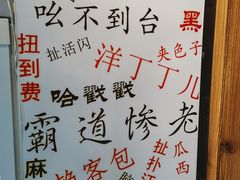 吆不到台
黑
扭到费
扯活闪
夹色子
洋丁丁儿
哈戳戳
霸道惨老
麻
客包
扯扑
瓜西